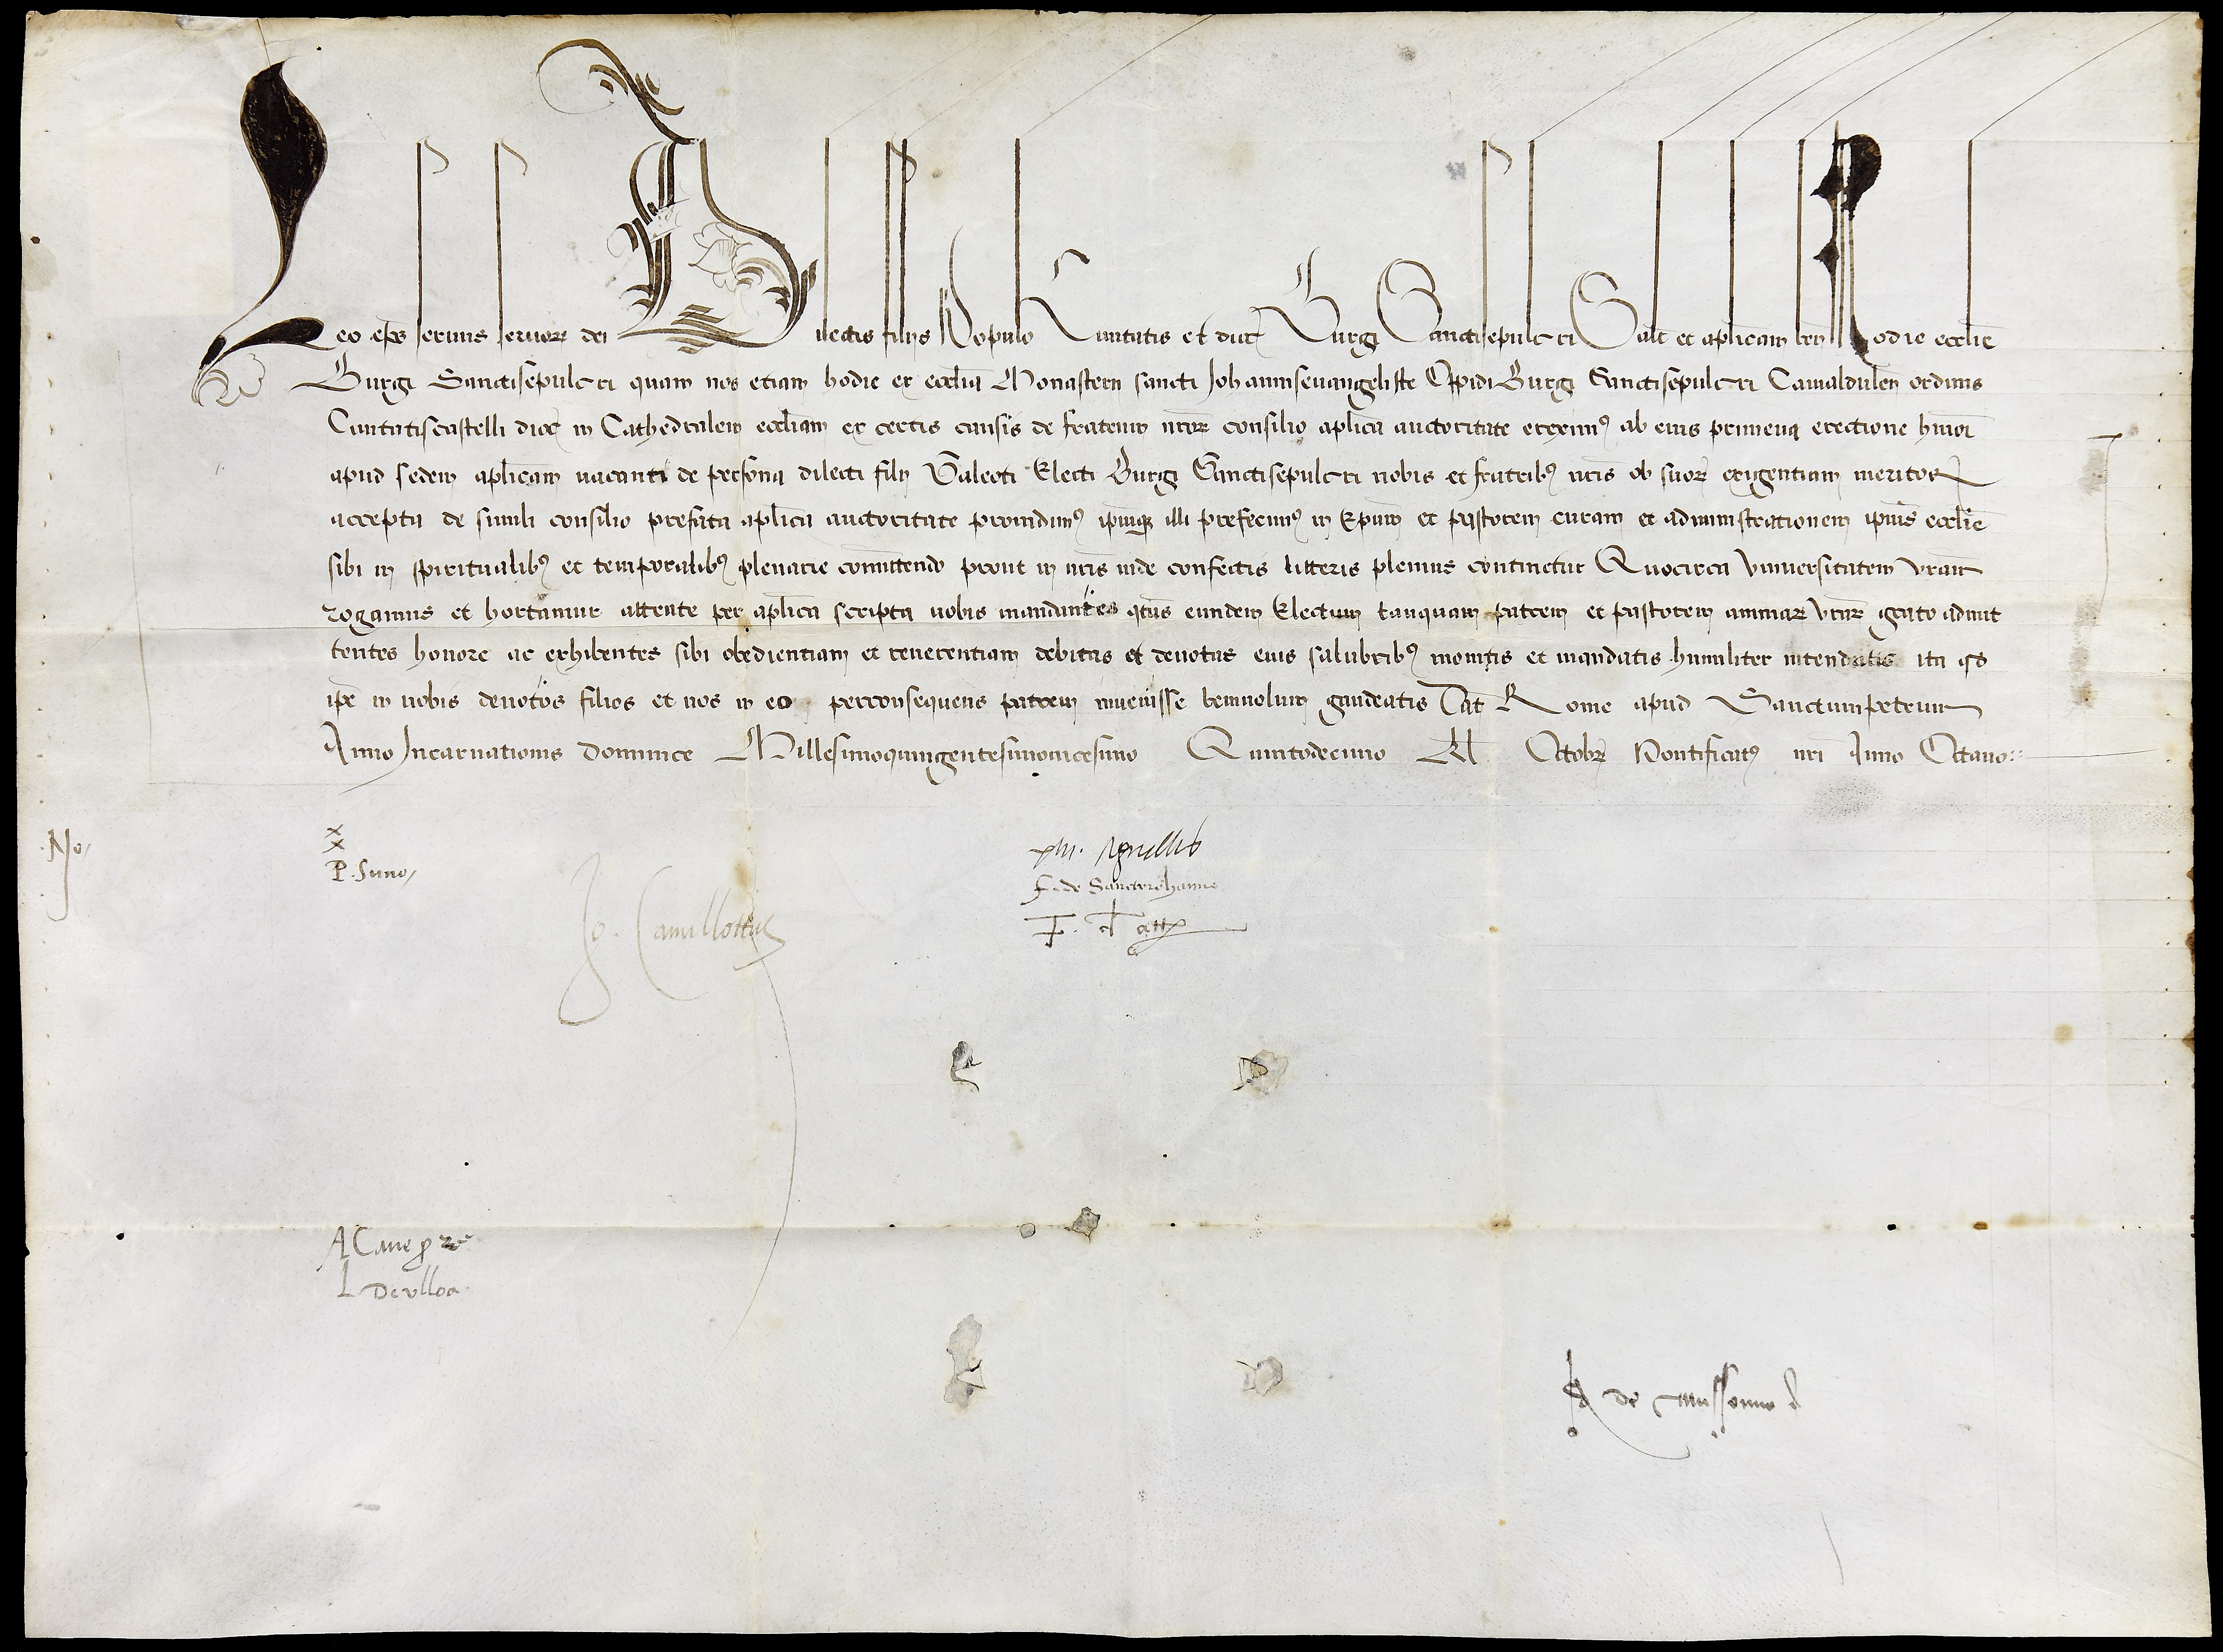 Leo ep̄s seruus seruorꝝ dei Dilectis filijs Populo Ciuitatis et dioc̄ Burgi Sanctisepulcri Salt̄ et aplicam ben̄ Hodie eccl̄ie
Burgi Sanctisepulcri quam nos etiam hodie ex eccl̄ia Monasterij sancti Johannisevangeliste Opidi Burgi Sanctisepulcri Camaldulen̄ ordinis
Ciuitatiscastelli dioc̄ in Cathedralem eccl̄iam ex certis causis de fratrum nrōꝝ consilio aplica auctoritate ereximꝰ ab eius primeua erectione hmōi
apud sedem aplicam uacanti de persona dilecti filij Galeoti Electi Burgi Sanctisepulcri nobis et fratribꝰ nrīs ob suoꝝ exigentiam meritoꝝ
accepta de simili consilio prefata aplica auctoritate prouidimꝰ ipmqꝫ illi prefecimꝰ in Epum et pastorem curam et administrationem ipius eccl̄ie
sibi in spiritualibꝰ et temporalibꝰ plenarie committendo prout in nrīs inde confectis litteris plenius continetur Quocirca vniuersitatem vrām
rogamus et hortamur attente per aplica scripta uobis mandantes qtūs eundem Electum tanquam patrem et pastorem animarꝝ vrārꝝ grato admit
tentes honore ac exhibentes sibi obedientiam et reuerentiam debitas et deuotas eius salubribꝰ monitis et mandatis humiliter intendatis ita qd̄
ipe in uobis deuotos filios et uos in eo perconsequens patrem inuenisse beniuolum gaudeatis Dat̄ Rome apud Sanctumpetrum
Anno Incarnationis Dominice Millesimoquingentesimouicesimo Quintodecimo Kl̄ Octobrꝭ Pontificatꝰ nrī Anno Octauo
No
x
x
P. Suno
Jo. Camillottus
phi. Agnellus
F. de Sanctorehanno
A Cane ꝓ
L De vlloa
A de mussonno